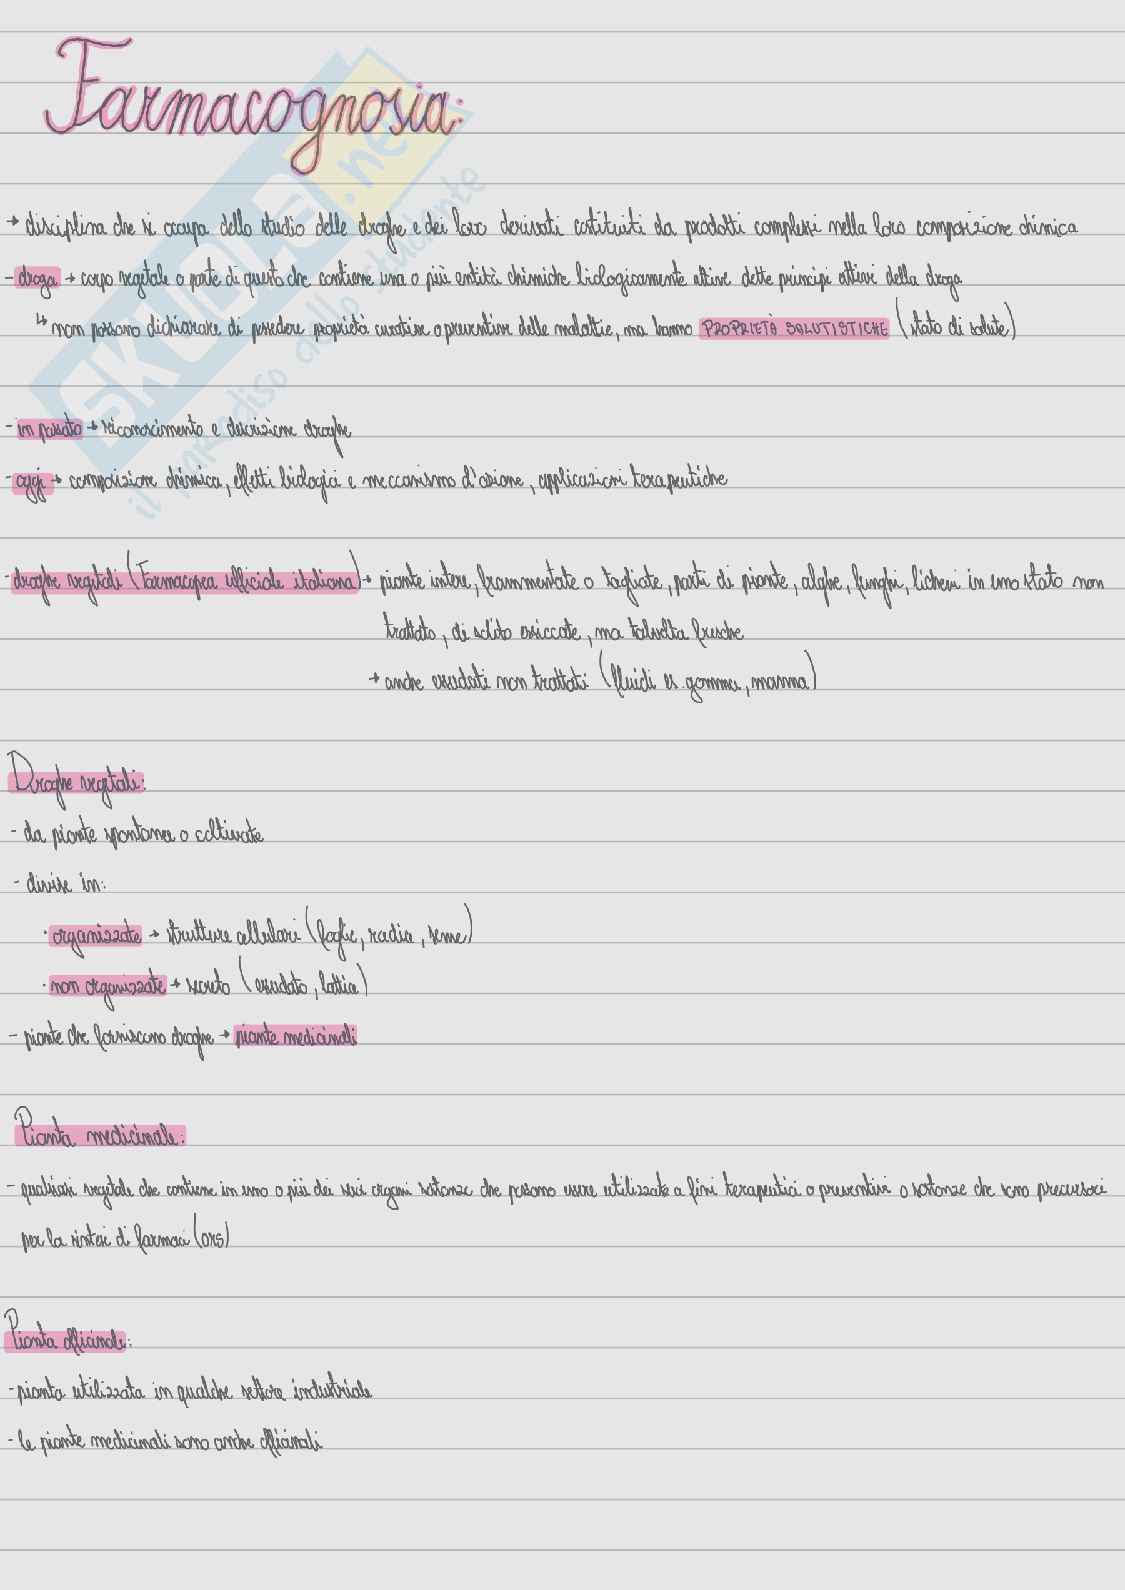 Farmacognosia:
→ disciplina che si occupa dello studio delle droghe e dei loro derivati costituiti da prodotti complessi nella loro composizione chimica
- droga → corpo vegetale o parte di questo che contiene una o più entità chimiche biologicamente attive dette principi attivi della droga
↳ non possono dichiarare di possedere proprietà curative o preventive delle malattie, ma hanno PROPRIETÀ SALUTISTICHE (stato di salute)
- in passato → riconoscimento e descrizione droghe
- oggi → composizione chimica, effetti biologici e meccanismo d'azione, applicazioni terapeutiche
- droghe vegetali (Farmacopea ufficiale italiana) → piante intere, frammentate o tagliate, parti di piante, alghe, funghi, licheni in uno stato non
trattato, di solito essiccate, ma talvolta fresche
→ anche essudati non trattati (fluidi es. gomme, manna)
Droghe vegetali:
- da piante spontanee o coltivate
- divise in:
· organizzate → strutture cellulari (foglie, radice, seme)
· non organizzate → secreto (essudato, lattice)
- piante che forniscono droghe → piante medicinali
Pianta medicinale:
- qualsiasi vegetale che contiene in uno o più dei suoi organi sostanze che possono essere utilizzate a fini terapeutici o preventivi o sostanze che sono precursori
per la sintesi di farmaci (OMS)
Pianta officinale:
- pianta utilizzata in qualche settore industriale
- le piante medicinali sono anche officinali
SKUOLA.net
il paradiso dello studente